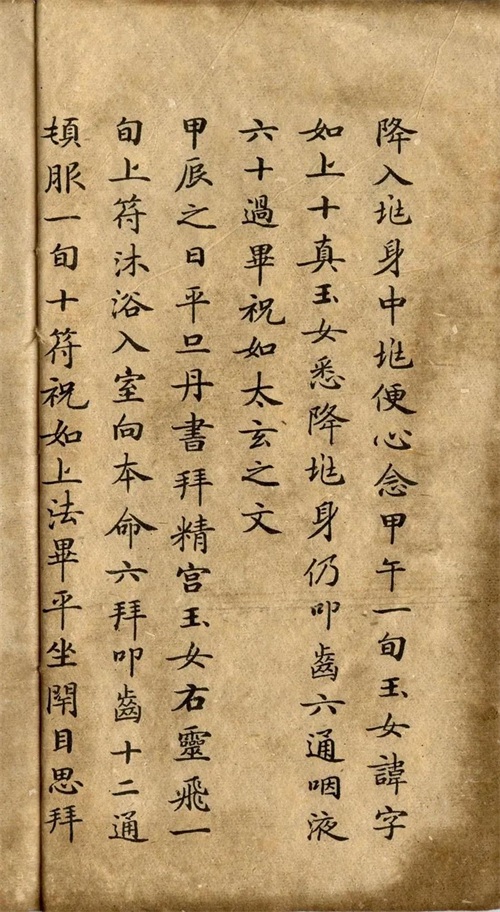 降入𡊮身中𡊮便心念甲午一旬玉女諱字
如上十真玉女悉降𡊮身仍叩齒六通咽液
六十過畢祝如太玄之文
甲辰之日平旦丹書拜精宮玉女右靈飛一
旬上符沐浴入室向本命六拜叩齒十二通
頓服一旬十符祝如上法畢平坐閇目思拜